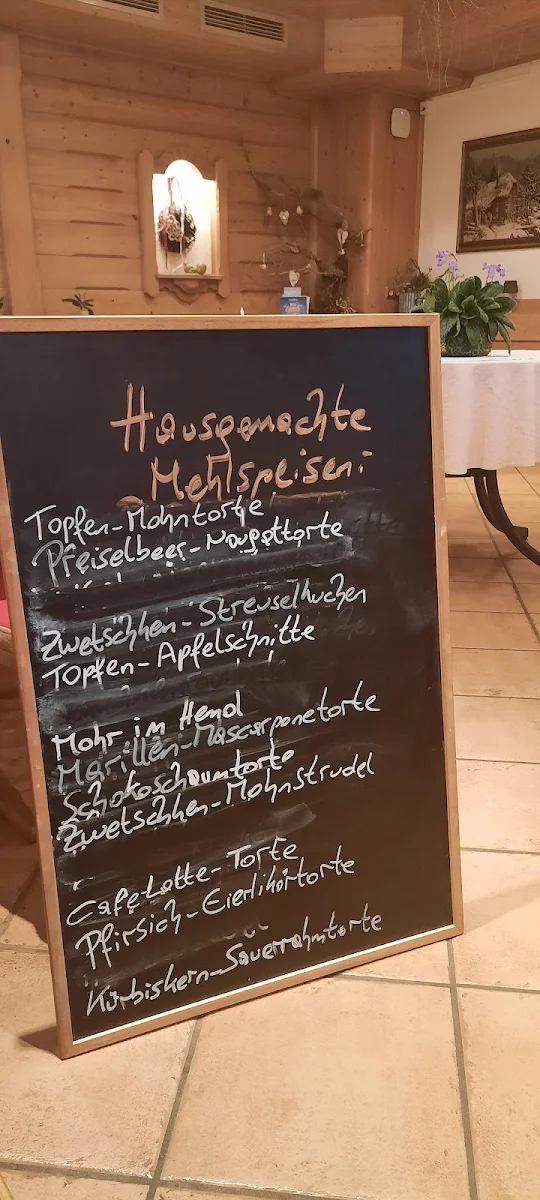 Hausgemachte
Mehlspeisen:
Topfen-Mohntorte
Preiselbeer-Nougattorte
Zwetschken-Streuselkuchen
Topfen-Apfelschnitte
Mohr im Hemd
Marillen-Mascarponetorte
Schokoschaumtorte
Zwetschken-Mohnstrudel
Cafelatte-Torte
Pfirsich-Eierlikörtorte
Kürbiskern-Sauerrahmtorte